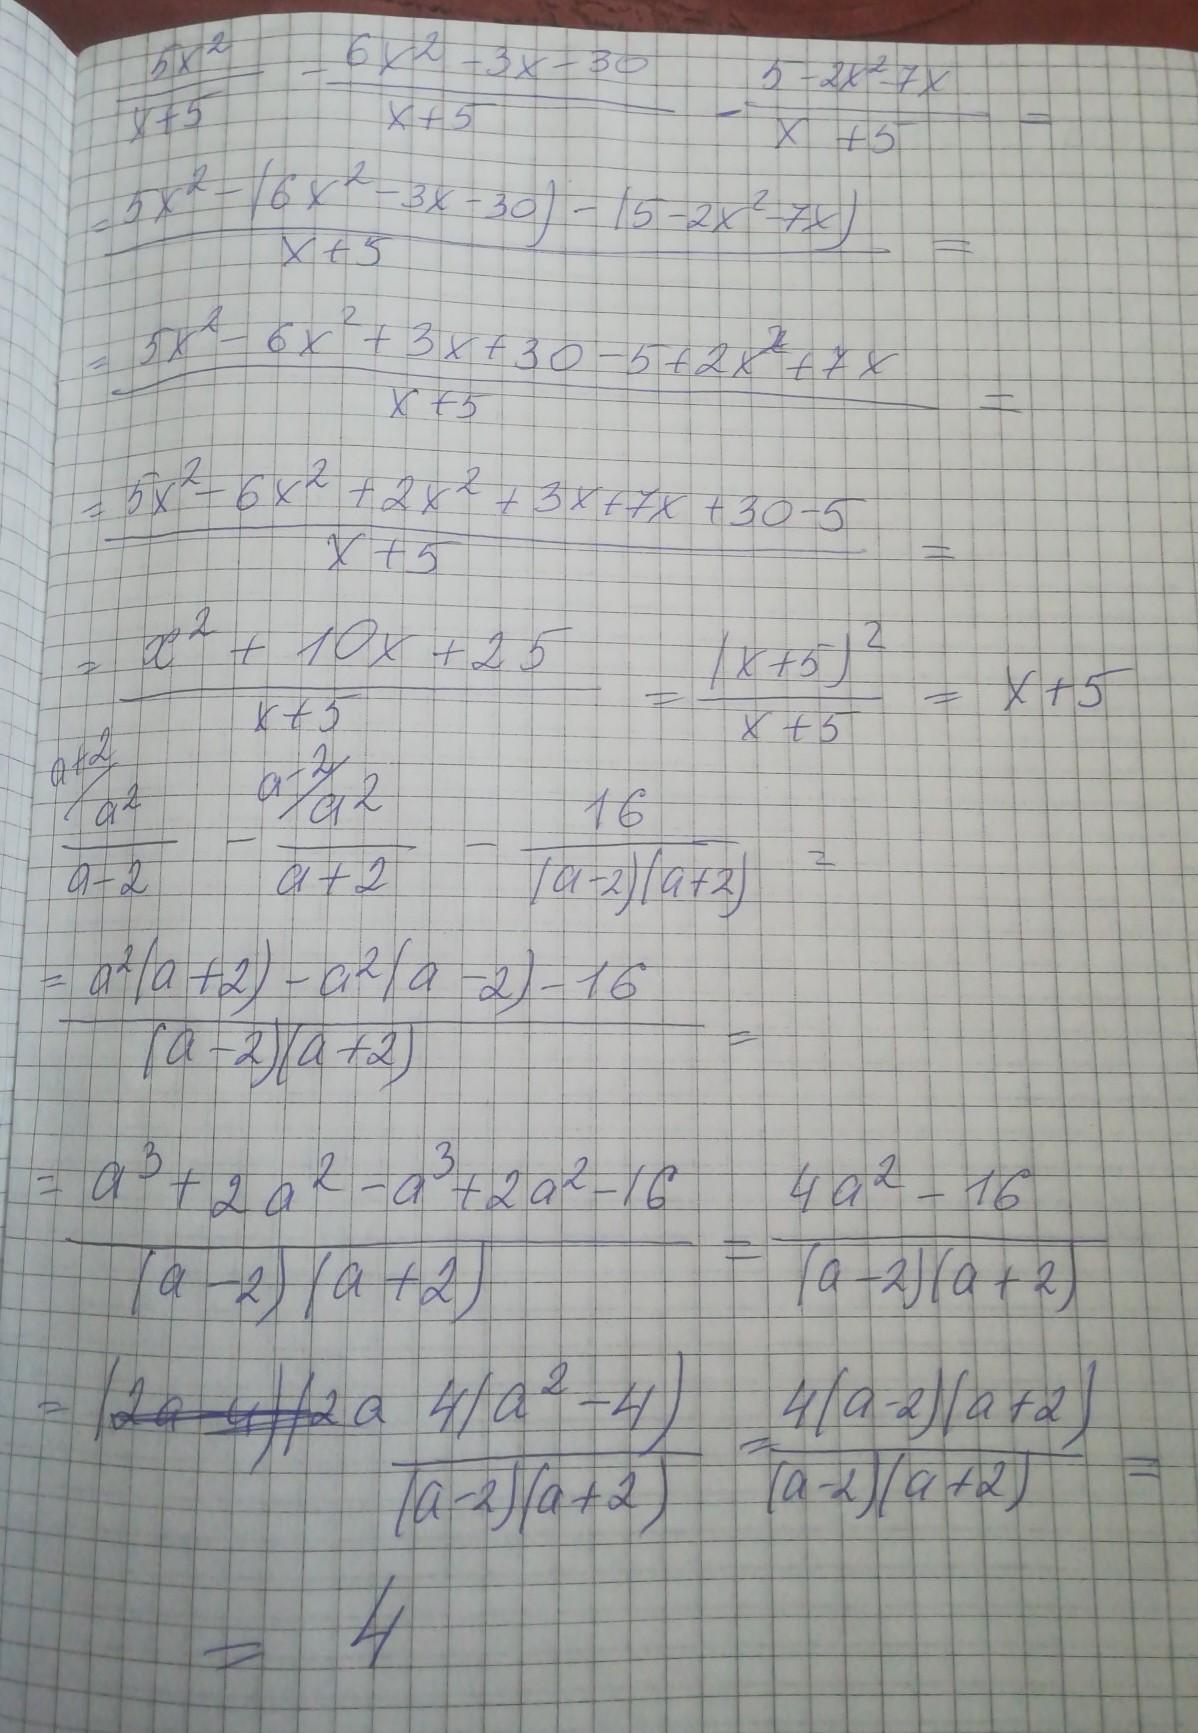 5x²/(x+5) - (6x² - 3x - 30)/(x+5) - (5 - 2x² - 7x)/(x+5) =
= (5x² - (6x² - 3x - 30) - (5 - 2x² - 7x))/(x+5) =
= (5x² - 6x² + 3x + 30 - 5 + 2x² + 7x)/(x+5) =
= (5x² - 6x² + 2x² + 3x + 7x + 30 - 5)/(x+5) =
= (x² + 10x + 25)/(x+5) = (x+5)²/(x+5) = x+5
a+2/ a²/(a-2) - a-2/ a²/(a+2) - 16/((a-2)(a+2)) =
= (a²(a+2) - a²(a-2) - 16)/((a-2)(a+2)) =
= (a³ + 2a² - a³ + 2a² - 16)/((a-2)(a+2)) = (4a² - 16)/((a-2)(a+2))
= (2a-4)(2a 4(a² - 4)/((a-2)(a+2)) = 4(a-2)(a+2)/((a-2)(a+2)) =
= 4